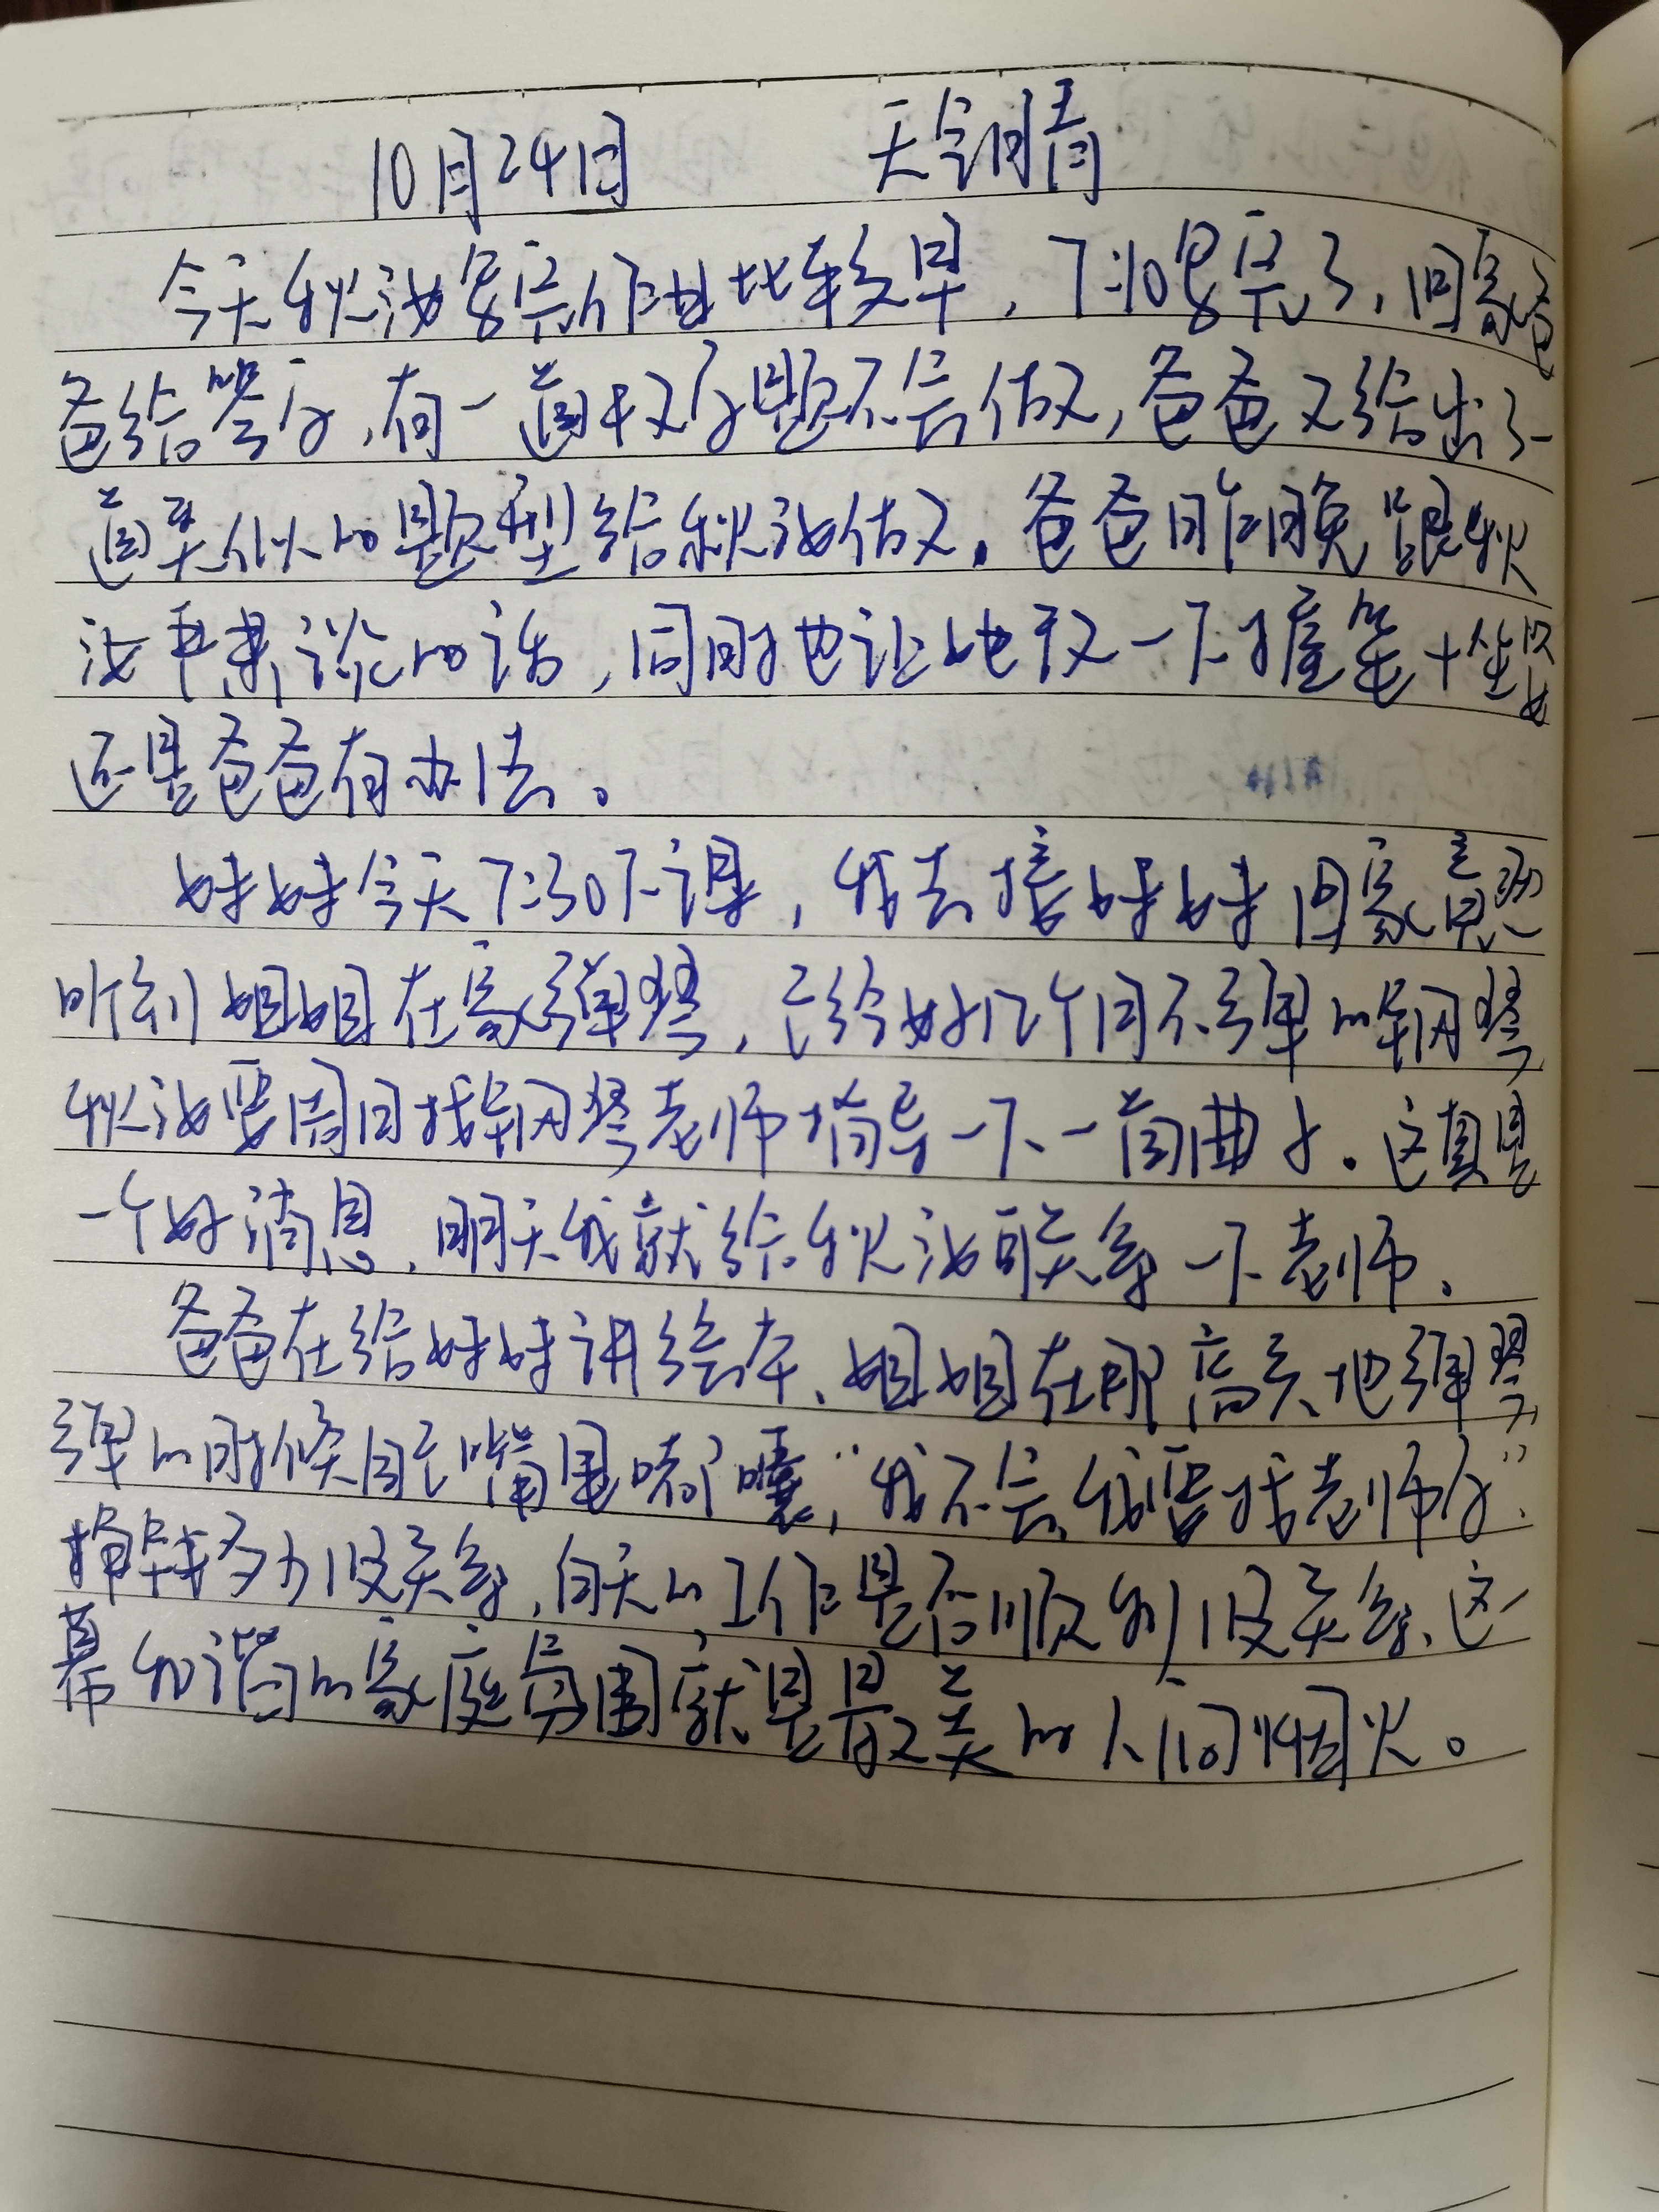 10月24日 天气晴
今天秋汝写完作业比较早，7:10写完了，回家爸
爸给签了，有一道数学题不会做，爸爸又给出了一
道类似的题型给秋汝做，爸爸昨晚跟秋
汝再谈的话，同时也让她写一下
还是爸爸有办法。
妹妹今天7:30下课，我去接妹妹回家
听到姐姐在家弹琴，已经好几个月不弹的钢琴
秋汝要周日找钢琴老师指导一下一首曲子。这真是
一个好消息，明天我就给秋汝联系一下老师。
爸爸在给妹妹讲绘本、姐姐在那高兴地弹琴
弹的时候自己嘴里嘟囔，“我不会，我要找老师了”，
挣钱多少没关系，白天的工作是否顺利没关系，这一
幕和谐的家庭氛围就是最美的人间烟火。